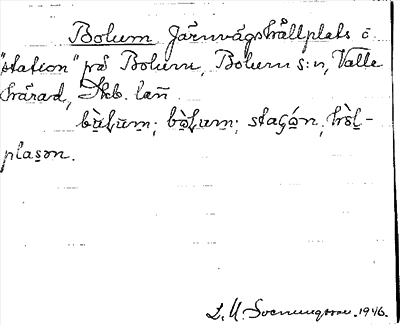 Bolum Järnvägshållplats o
"station" på Bolum, Bolum s:n, Valle
härad, Skb. län.
bò̤ḻum̱; bò̤ḻum̱; staʃón, hòl-
plasən.
L. M. Svenungsson. 1946.